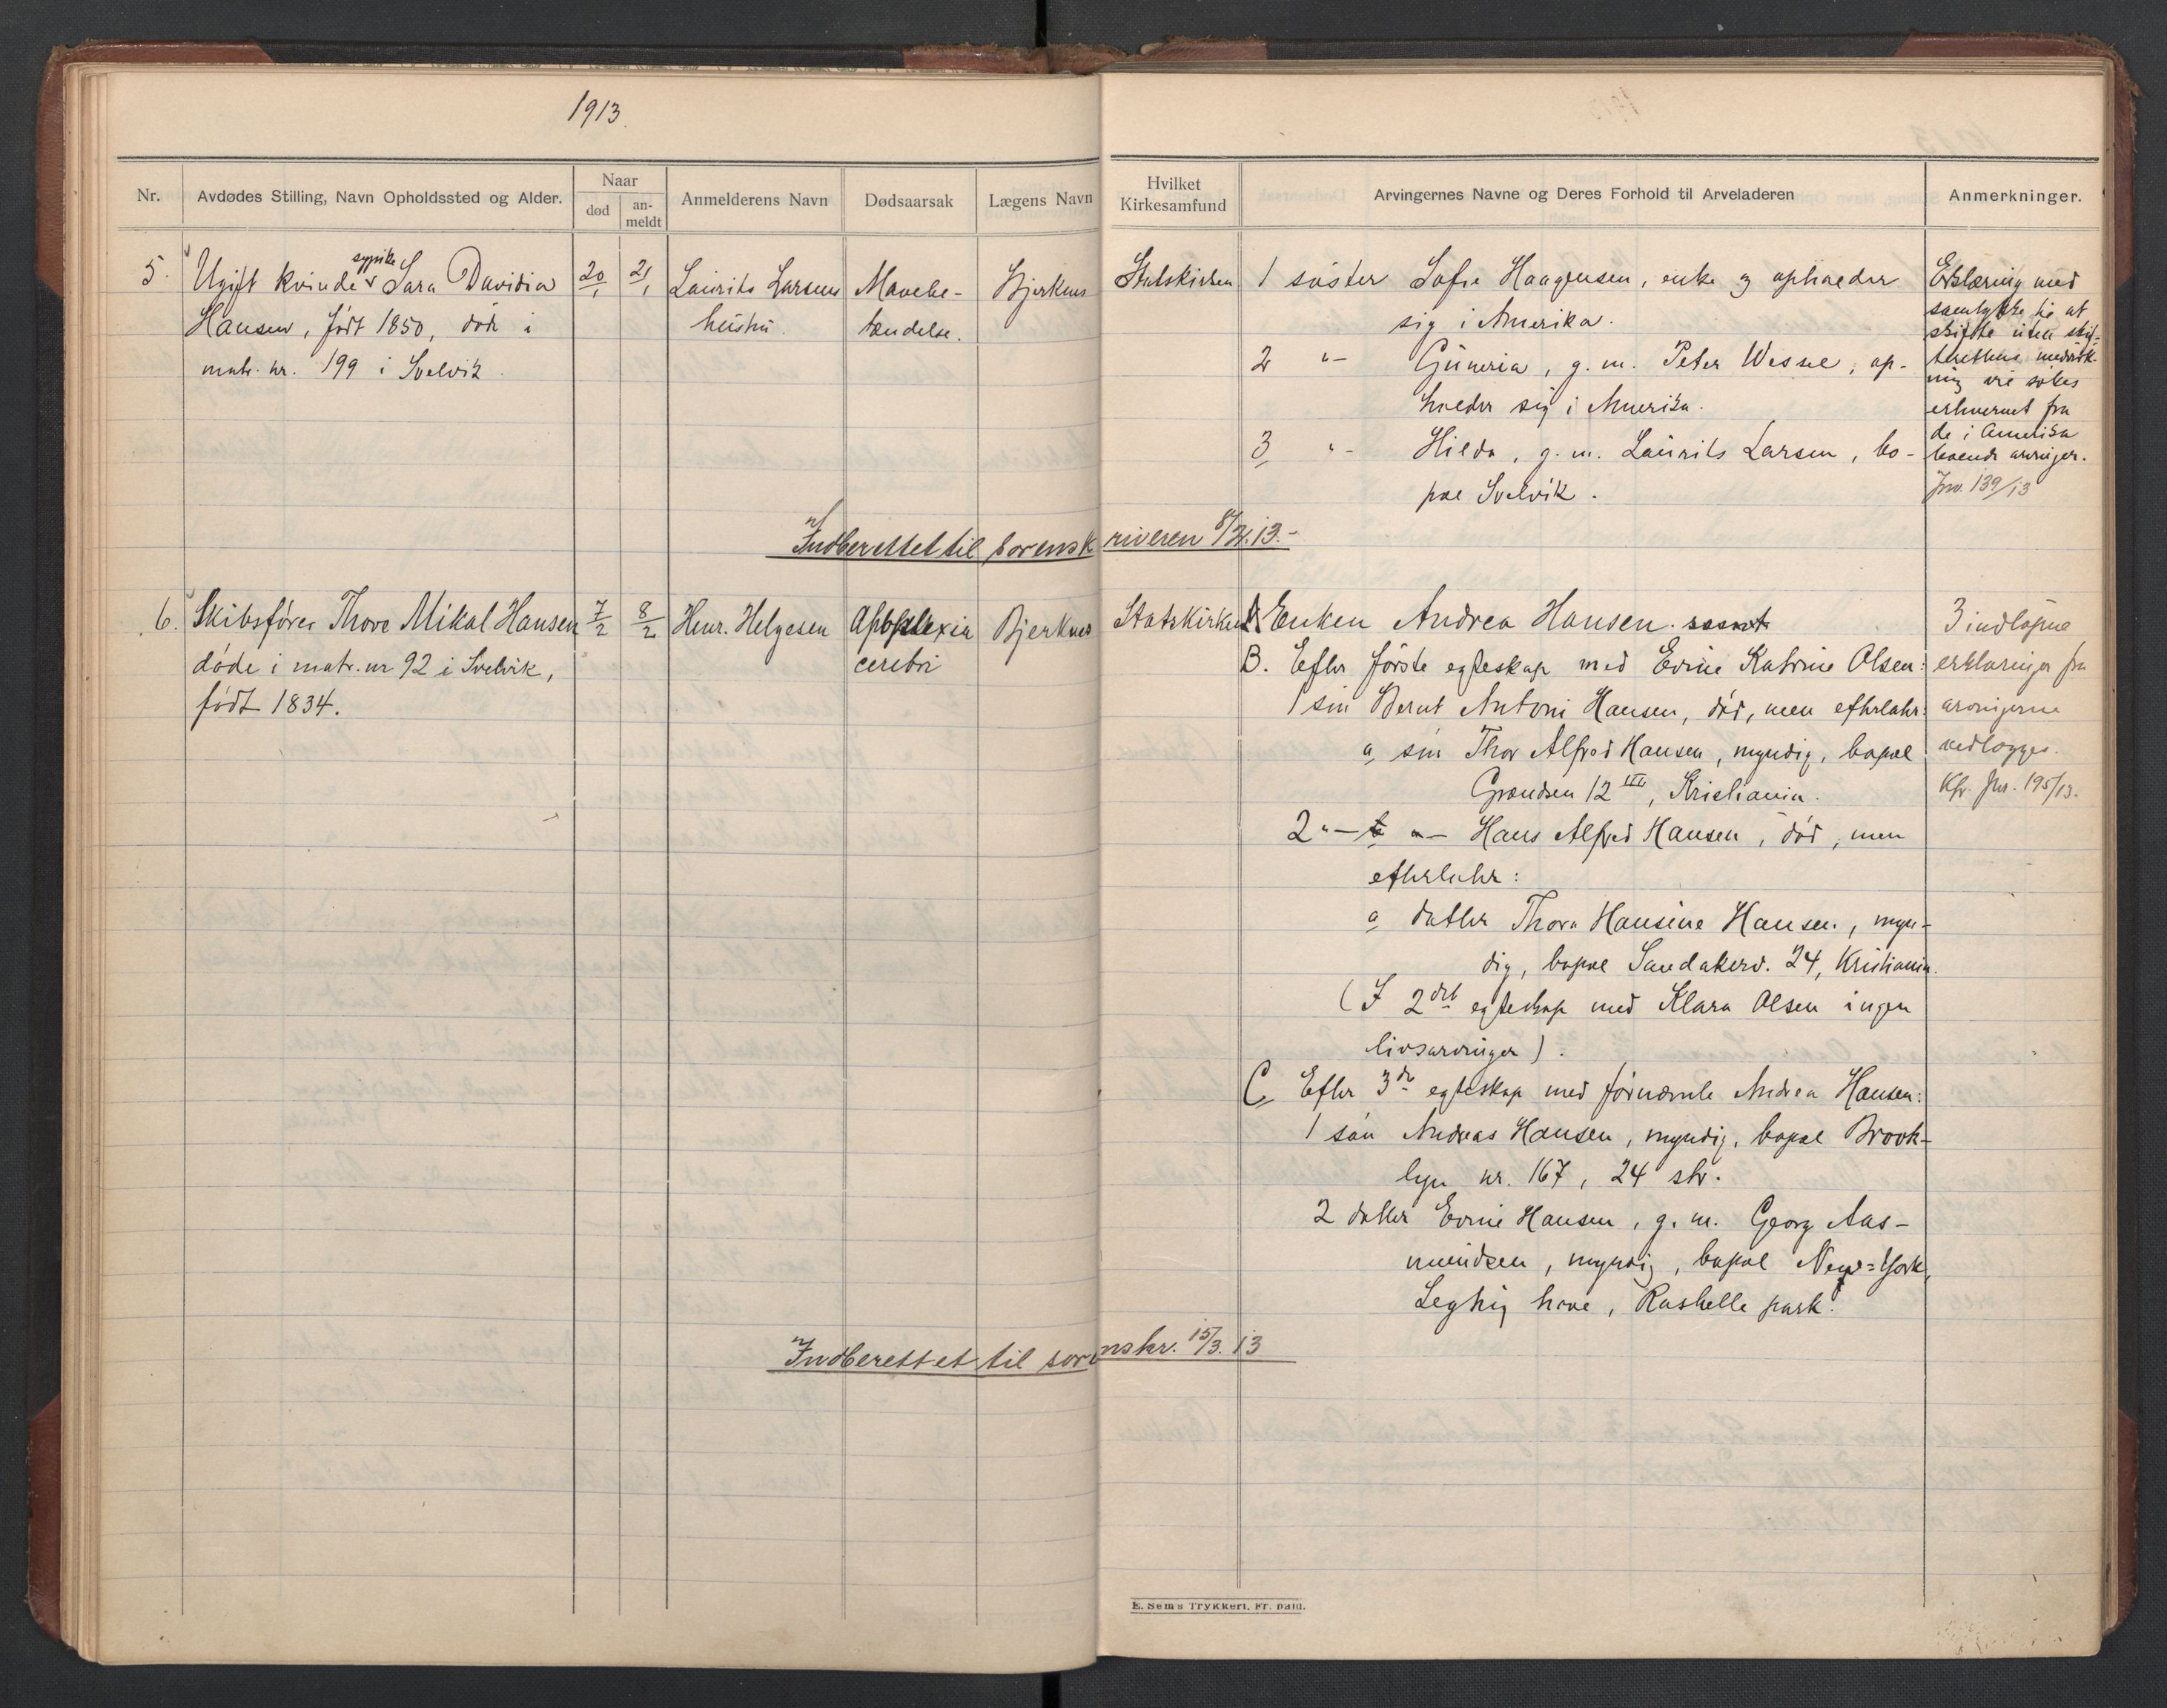 1913
Nr.
Avdødes Stilling, Navn Opholdssted og Alder.
Naar
død
an-
meldt
Anmelderens Navn
Dødsaarsak
Lægens Navn
Hvilket
Kirkesamfund
Arvingernes Navne og Deres Forhold til Arveladeren
Anmerkninger.
5.
sypike
Ugift kvinde v Sara Davidia
Hansen, født 1850, død i
matr. nr. 199 i Svelvik.
20/1
21/1
Laurits Larsens
hustru.
Mavebe-
tændelse.
Bjerknes
Statskirken
1 søster Sofie Haagensen, enke og opholder
sig i Amerika.
2 "- Guneria, g. m. Peter Wessel, op-
holder sig i Amerika.
3 "- Hilda, g. m. Laurits Larsen, bo-
pæl Svelvik.
Erklæring med
samtykke til at
skifte uten skif-
terettens medvirk-
ning vil søkes
erhvervet fra
de i Amerika
boende arvinger.
Jnr. 139/13
Indberettet til sorenskriveren 8/2.13.-
6.
Skibsfører Thore Mikal Hansen
døde i matr. nr 92 i Svelvik,
født 1834.
7/2
8/2
Henr. Helgesen
Apoplexia
cerebri
Bjerknes
Statskirken
A Enken Andrea Hansen. samt
B. Efter første egteskap med Evine Katrine Olsen:
1 søn Bernt Antoni Hansen, død, men efterlater:
a, søn Thor Alfred Hansen, myndig, bopæl
Grændsen 12 III, Kristiania.
2 "- "- Hans Alfred Hansen, død, men
efterlater:
a datter Thora Hansine Hansen, myn-
dig, bopæl Sandakerv. 24, Kristiania.
(I 2det egteskap med Klara Olsen ingen
livsarvinger).
C, Efter 3de egteskap med førnævnte Andrea Hansen:
1 søn Andreas Hansen, myndig, bopæl Brook-
lyn nr. 167, 24 str.
2 datter Evine Hansen, g. m. Georg Aas-
mundsen, myndig, bopæl New=York,
have, Rashelle park.
3 indløpne
erklæringer fra
arvingerne
vedlægges.
Kfr. Jnr. 195/13.
Indberettet til sorenskr. 15/3. 13
E. Sem's Trykkeri, Fr. hald.